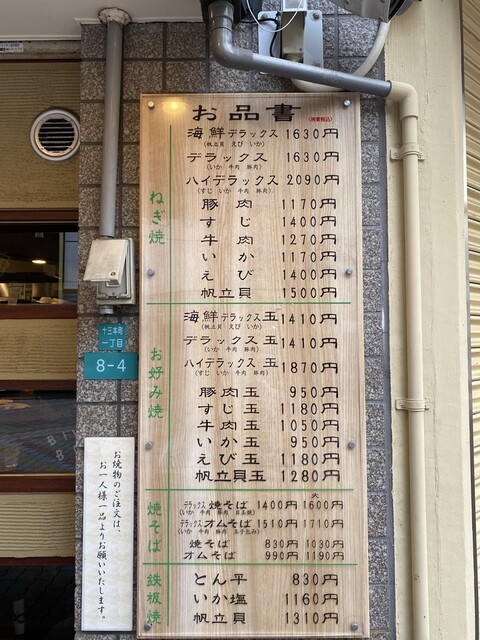 お品書
(消費税込)
ねぎ焼
海鮮デラックス 1630円
(帆立貝 えび いか)
デラックス 1630円
(いか 牛肉 豚肉)
ハイデラックス 2090円
(すじ いか 牛肉 豚肉)
豚肉 1170円
すじ 1400円
牛肉 1270円
いか 1170円
えび 1400円
帆立貝 1500円
お好み焼
海鮮デラックス玉 1410円
(帆立貝 えび いか)
デラックス玉 1410円
(いか 牛肉 豚肉)
ハイデラックス玉 1870円
(すじ いか 牛肉 豚肉)
豚肉玉 950円
すじ玉 1180円
牛肉玉 1050円
いか玉 950円
えび玉 1180円
帆立貝玉 1280円
焼そば
大
デラックス焼そば 1400円 1600円
(いか 牛肉 豚肉 目玉焼)
デラックスオムそば 1510円 1710円
(いか 牛肉 豚肉 玉子包み)
焼そば 830円 1030円
オムそば 990円 1190円
鉄板焼
とん平 830円
いか塩 1160円
帆立貝 1310円
十三本町
一丁目
8-4
お焼物のご注文は、
お一人様一品よりお願いいたします。